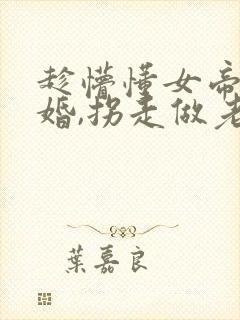 趁懵懂女帝
婚,拐走做老
葉嘉良